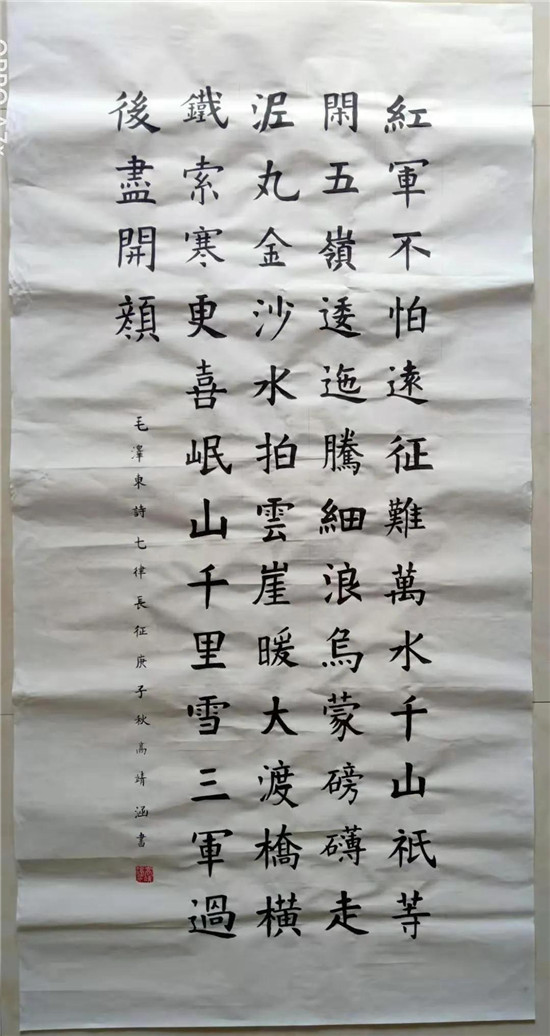 紅軍不怕遠征難萬水千山祇等
閑五嶺逶迤騰細浪烏蒙磅礴走
泥丸金沙水拍雲崖暖大渡橋橫
鐵索寒更喜岷山千里雪三軍過
後盡開顏
毛澤東詩七律長征庚子秋高靖涵書